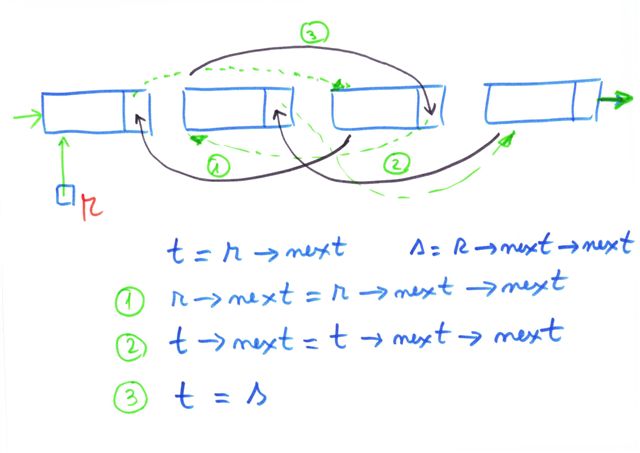 ③
① ②
r
t = r → next s = r → next → next
① r → next = r → next → next
② t → next = t → next → next
③ t = s